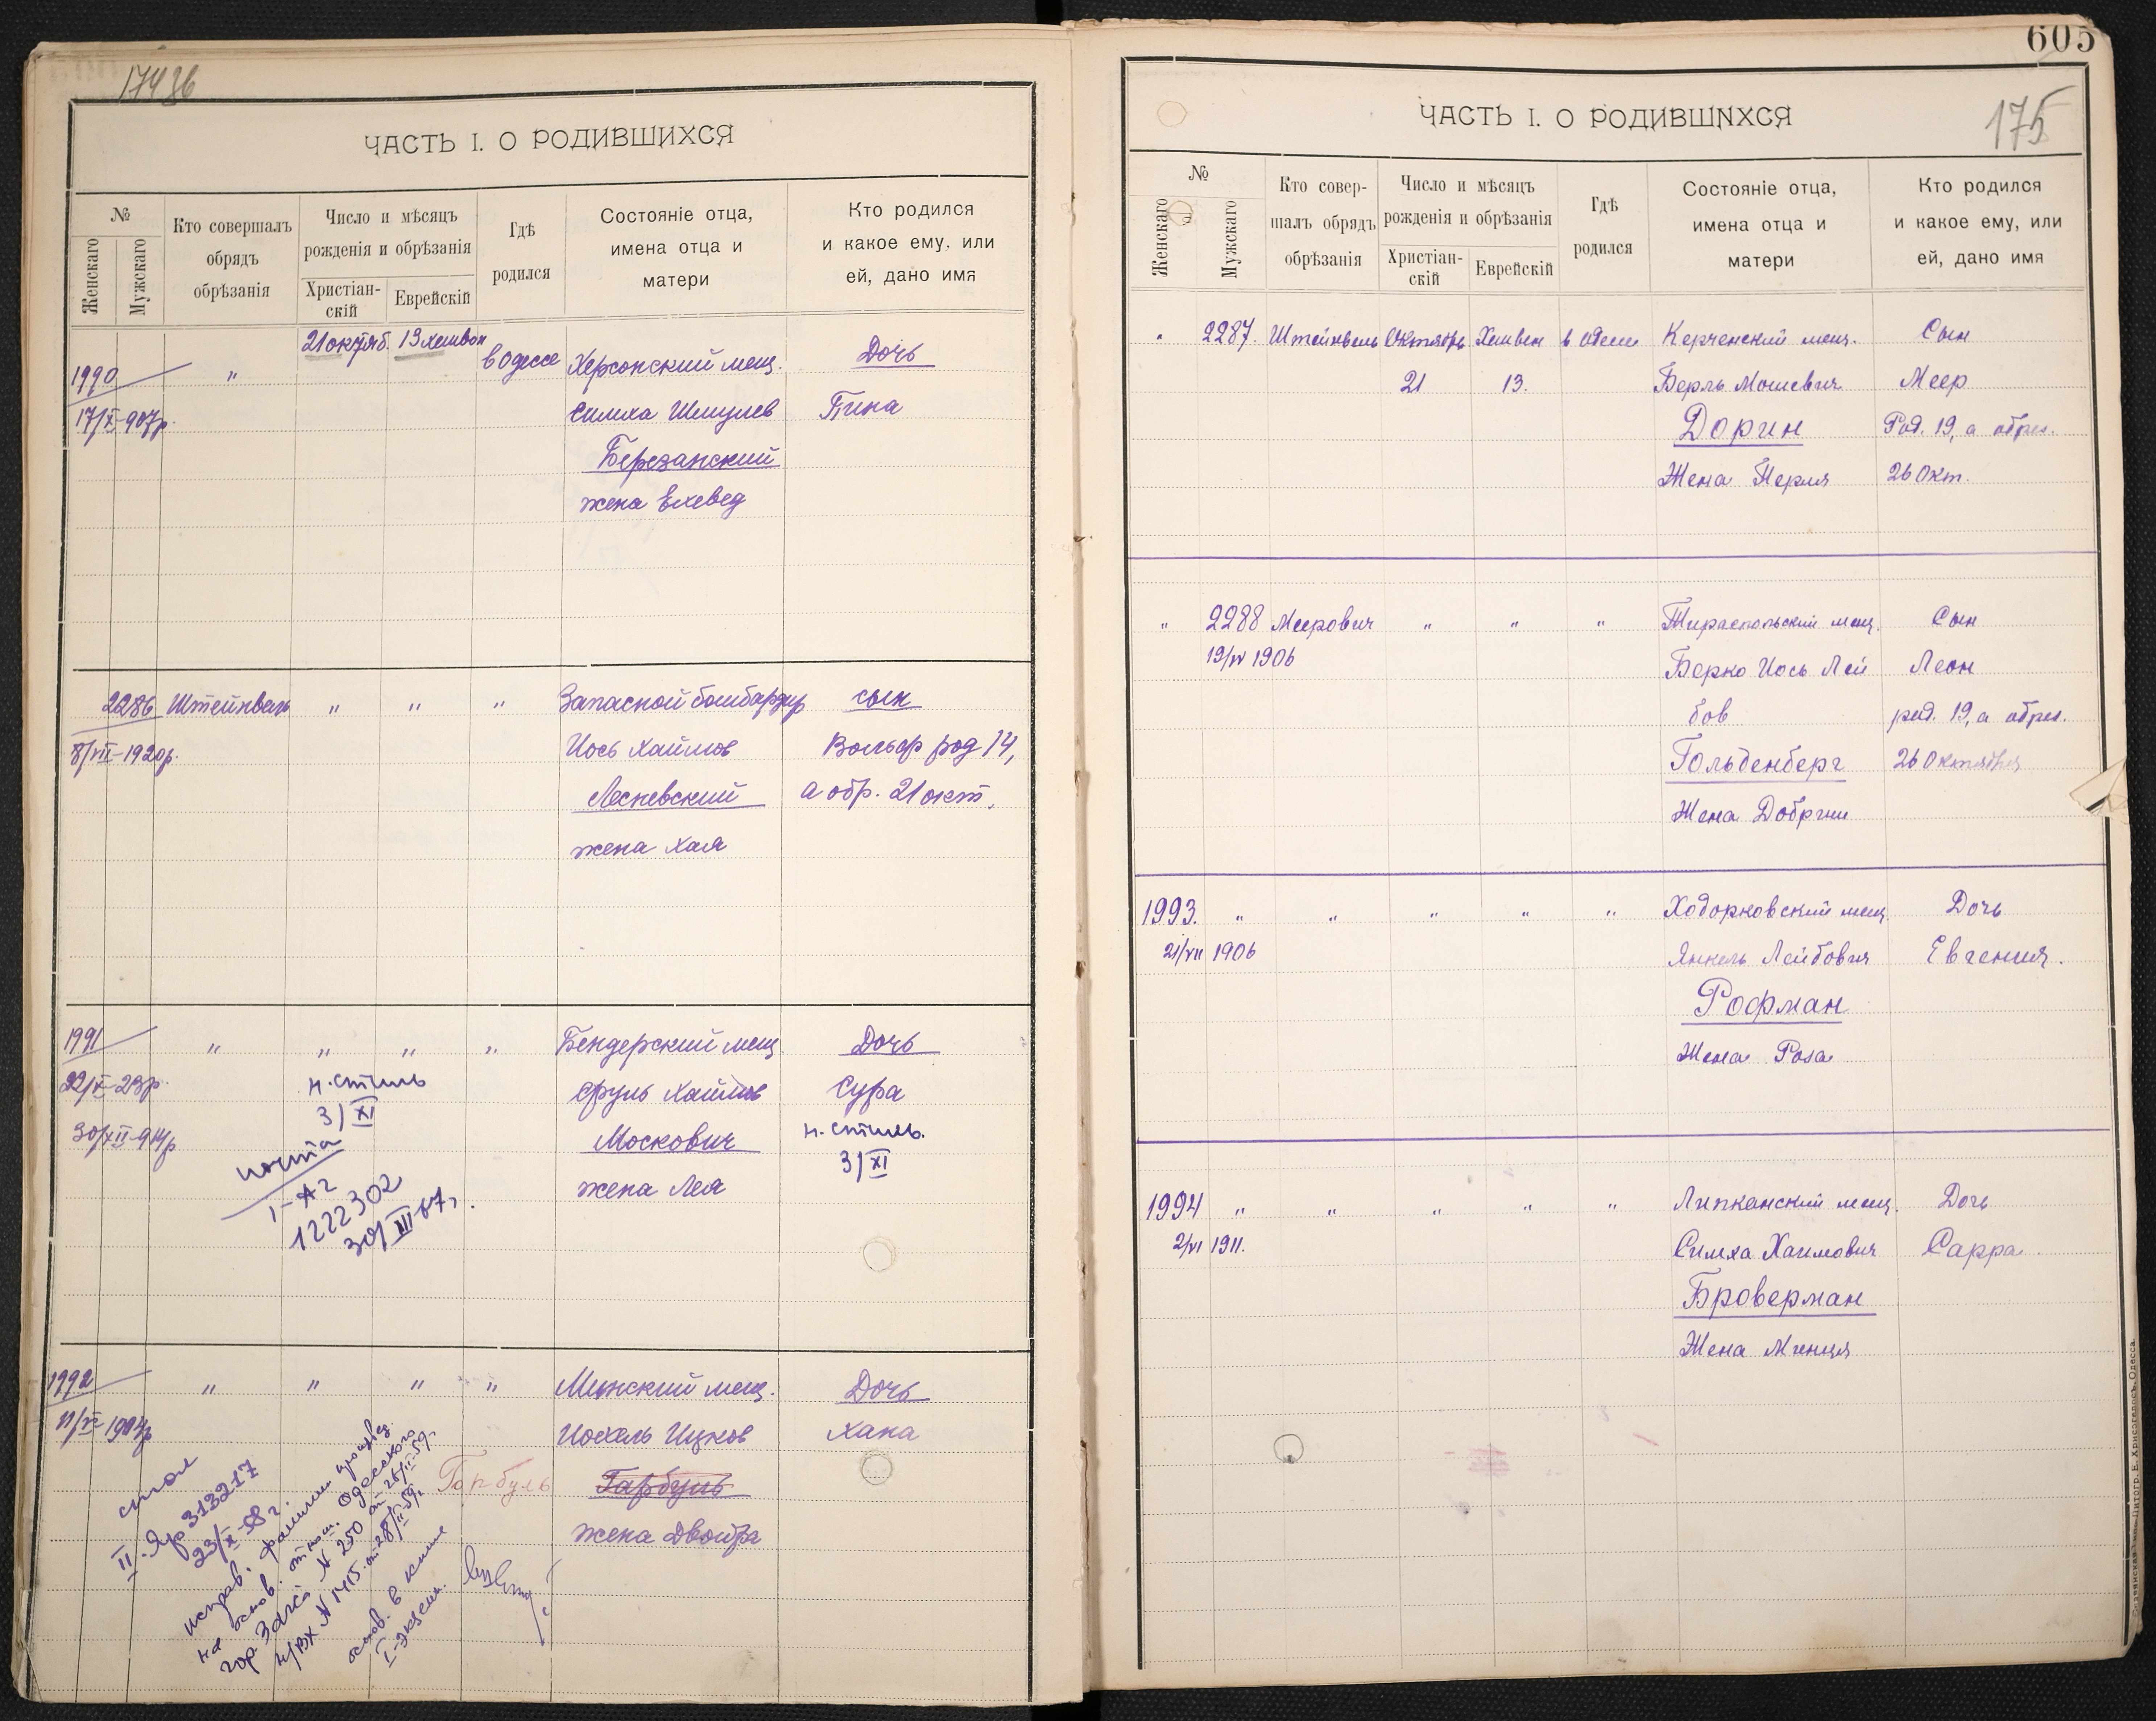 17436
ЧАСТЬ I. О РОДИВШИХСЯ
№
Женскаго
Мужскаго
Кто совершалъ
обрядъ
обрѣзанія
Число и мѣсяцъ
рожденія и обрѣзанія
Христіан-
скій
Еврейскій
Гдѣ
родился
Состояніе отца,
имена отца и
матери
Кто родился
и какое ему, или
ей, дано имя
1990 " 21 октяб. 13 хешвон в Одессе Херсонский мещ. Дочь
17/X-907р. Симха Шмулев
Березанский
жена Ехевед
2286 Штейнвель " " " Запасной бомбардир сын
8/VII-1920р. Иось Хаимов Вольф род 14,
Лесневский а обр. 21 окт.
жена Хая
1991 " " " " Бендерский мещ. Дочь
22/X-23р. н. стиль Сруль Хаимов Сура
3/XI
30/XII-914р Москович н. стиль.
3/XI
жена Лея
почта
1222302
1992 " " " " Минский мещ. Дочь
Ицков Хана
Горбуль Гарбуль
жена Двойра
стол
II-Яр 313217
23/X-58 г.
исправ. фамилии произвед.
на основ. отнош. Одесского
гор ЗАГСа N 250 от 26/II-59г.
н/вх N 1415 от 28/II-59г.
основ. в книге
I-экзем.
605
175
ЧАСТЬ I. О РОДИВШИХСЯ
№
Женскаго
Мужскаго
Кто совер-
шалъ обрядъ
обрѣзанія
Число и мѣсяцъ
рожденія и обрѣзанія
Христіан-
скій
Еврейскій
Гдѣ
родился
Состояніе отца,
имена отца и
матери
Кто родился
и какое ему, или
ей, дано имя
" 2287. Штейнвель Октябрь Хешвен в Одессе Керченский мещ. Сын
21 13. Берль Мошевич Меер
Дорин Род. 19, а обрез.
Жена Перля 26 Окт.
" 2288 Меерович " " " Тираспольский мещ. Сын
19/IV 1906 Берко Иось Лей Леон
бов род. 19, а обрез.
Гольденберг 26 Октября
Жена Добриш
1993. " " " " " Ходорковский мещ. Дочь
21/VII 1906 Янкель Лейбович Евгения.
Рофман
Жена Роза
1994 " " " " " Липканский мещ. Дочь
2/VI 1911. Симха Хаимович Сарра
Броверман
Жена Минця